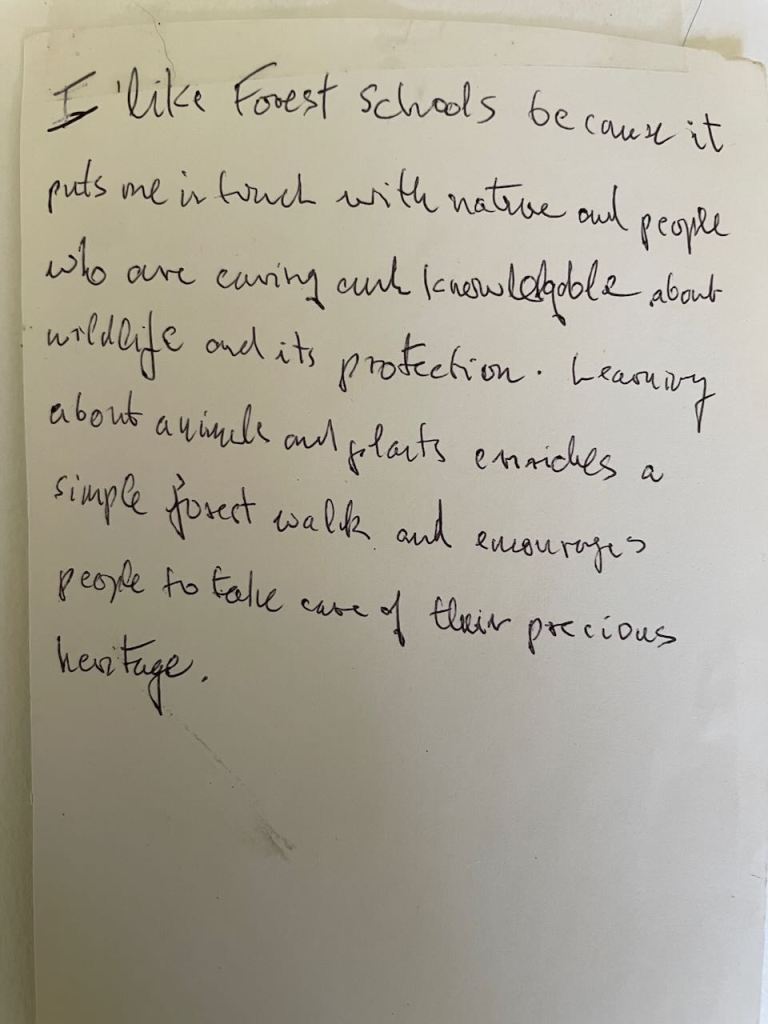 I like Forest Schools because it
puts me in touch with nature and people
who are caring and knowledgable about
wildlife and its protection. Learning
about animals and plants enriches a
simple forest walk and encourages
people to take care of their precious
heritage.